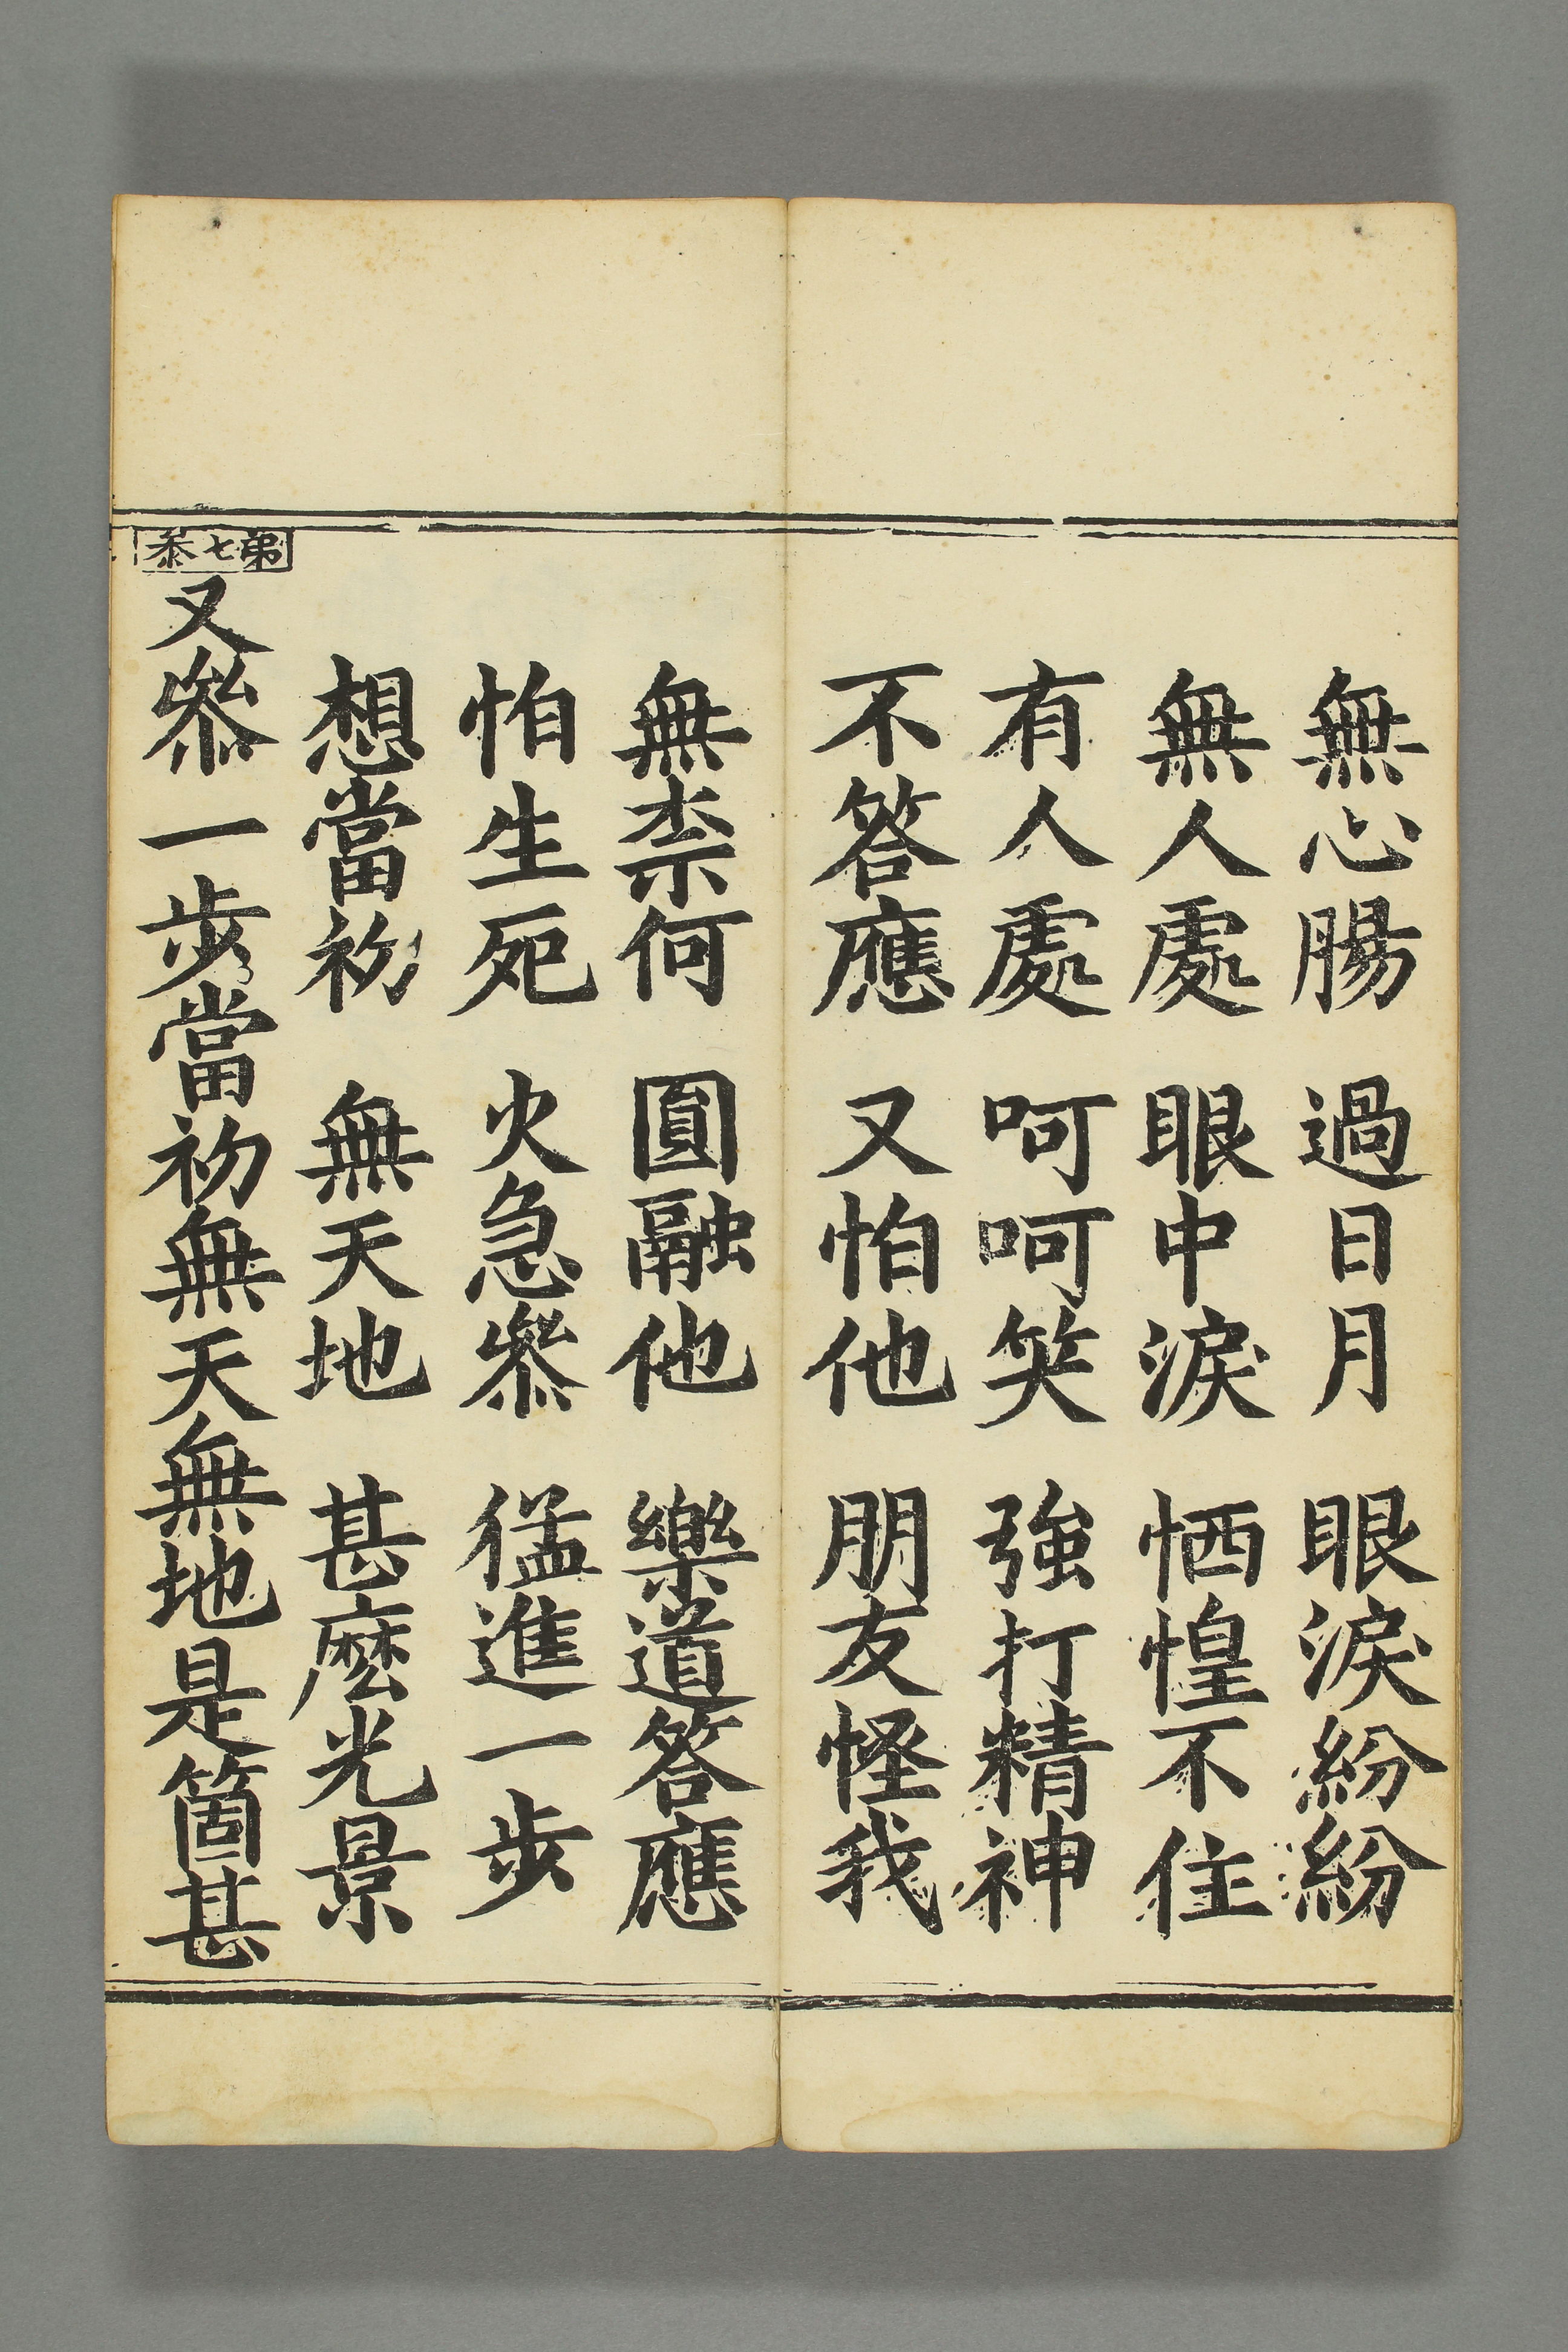 無心腸　過日月　眼淚紛紛
無人處　眼中淚　恓惶不住
有人處　呵呵笑　強打精神
不答應　又怕他　朋友怪我
無柰何　圓融他　樂道答應
怕生死　火急叅　猛進一步
想當初　無天地　甚麽光景
第七叅
又叅一步當初無天無地是箇甚